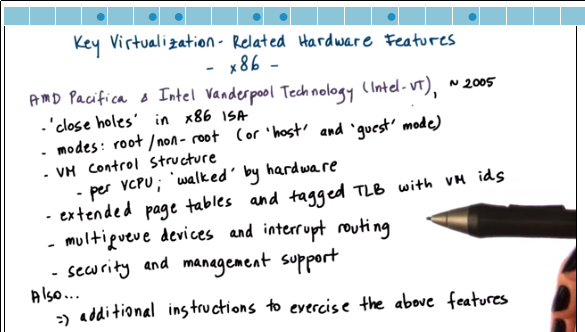 Key Virtualization - Related Hardware Features
- x86 -
AMD Pacifica & Intel Vanderpool Technology (Intel-VT), ~ 2005
- 'close holes' in x86 ISA
- modes: root/non-root (or 'host' and 'guest' mode)
- VM Control Structure
- per VCPU; 'walked' by hardware
- extended page tables and tagged TLB with VM ids
- multiqueue devices and interrupt routing
- security and management support
Also...
=> additional instructions to exercise the above features